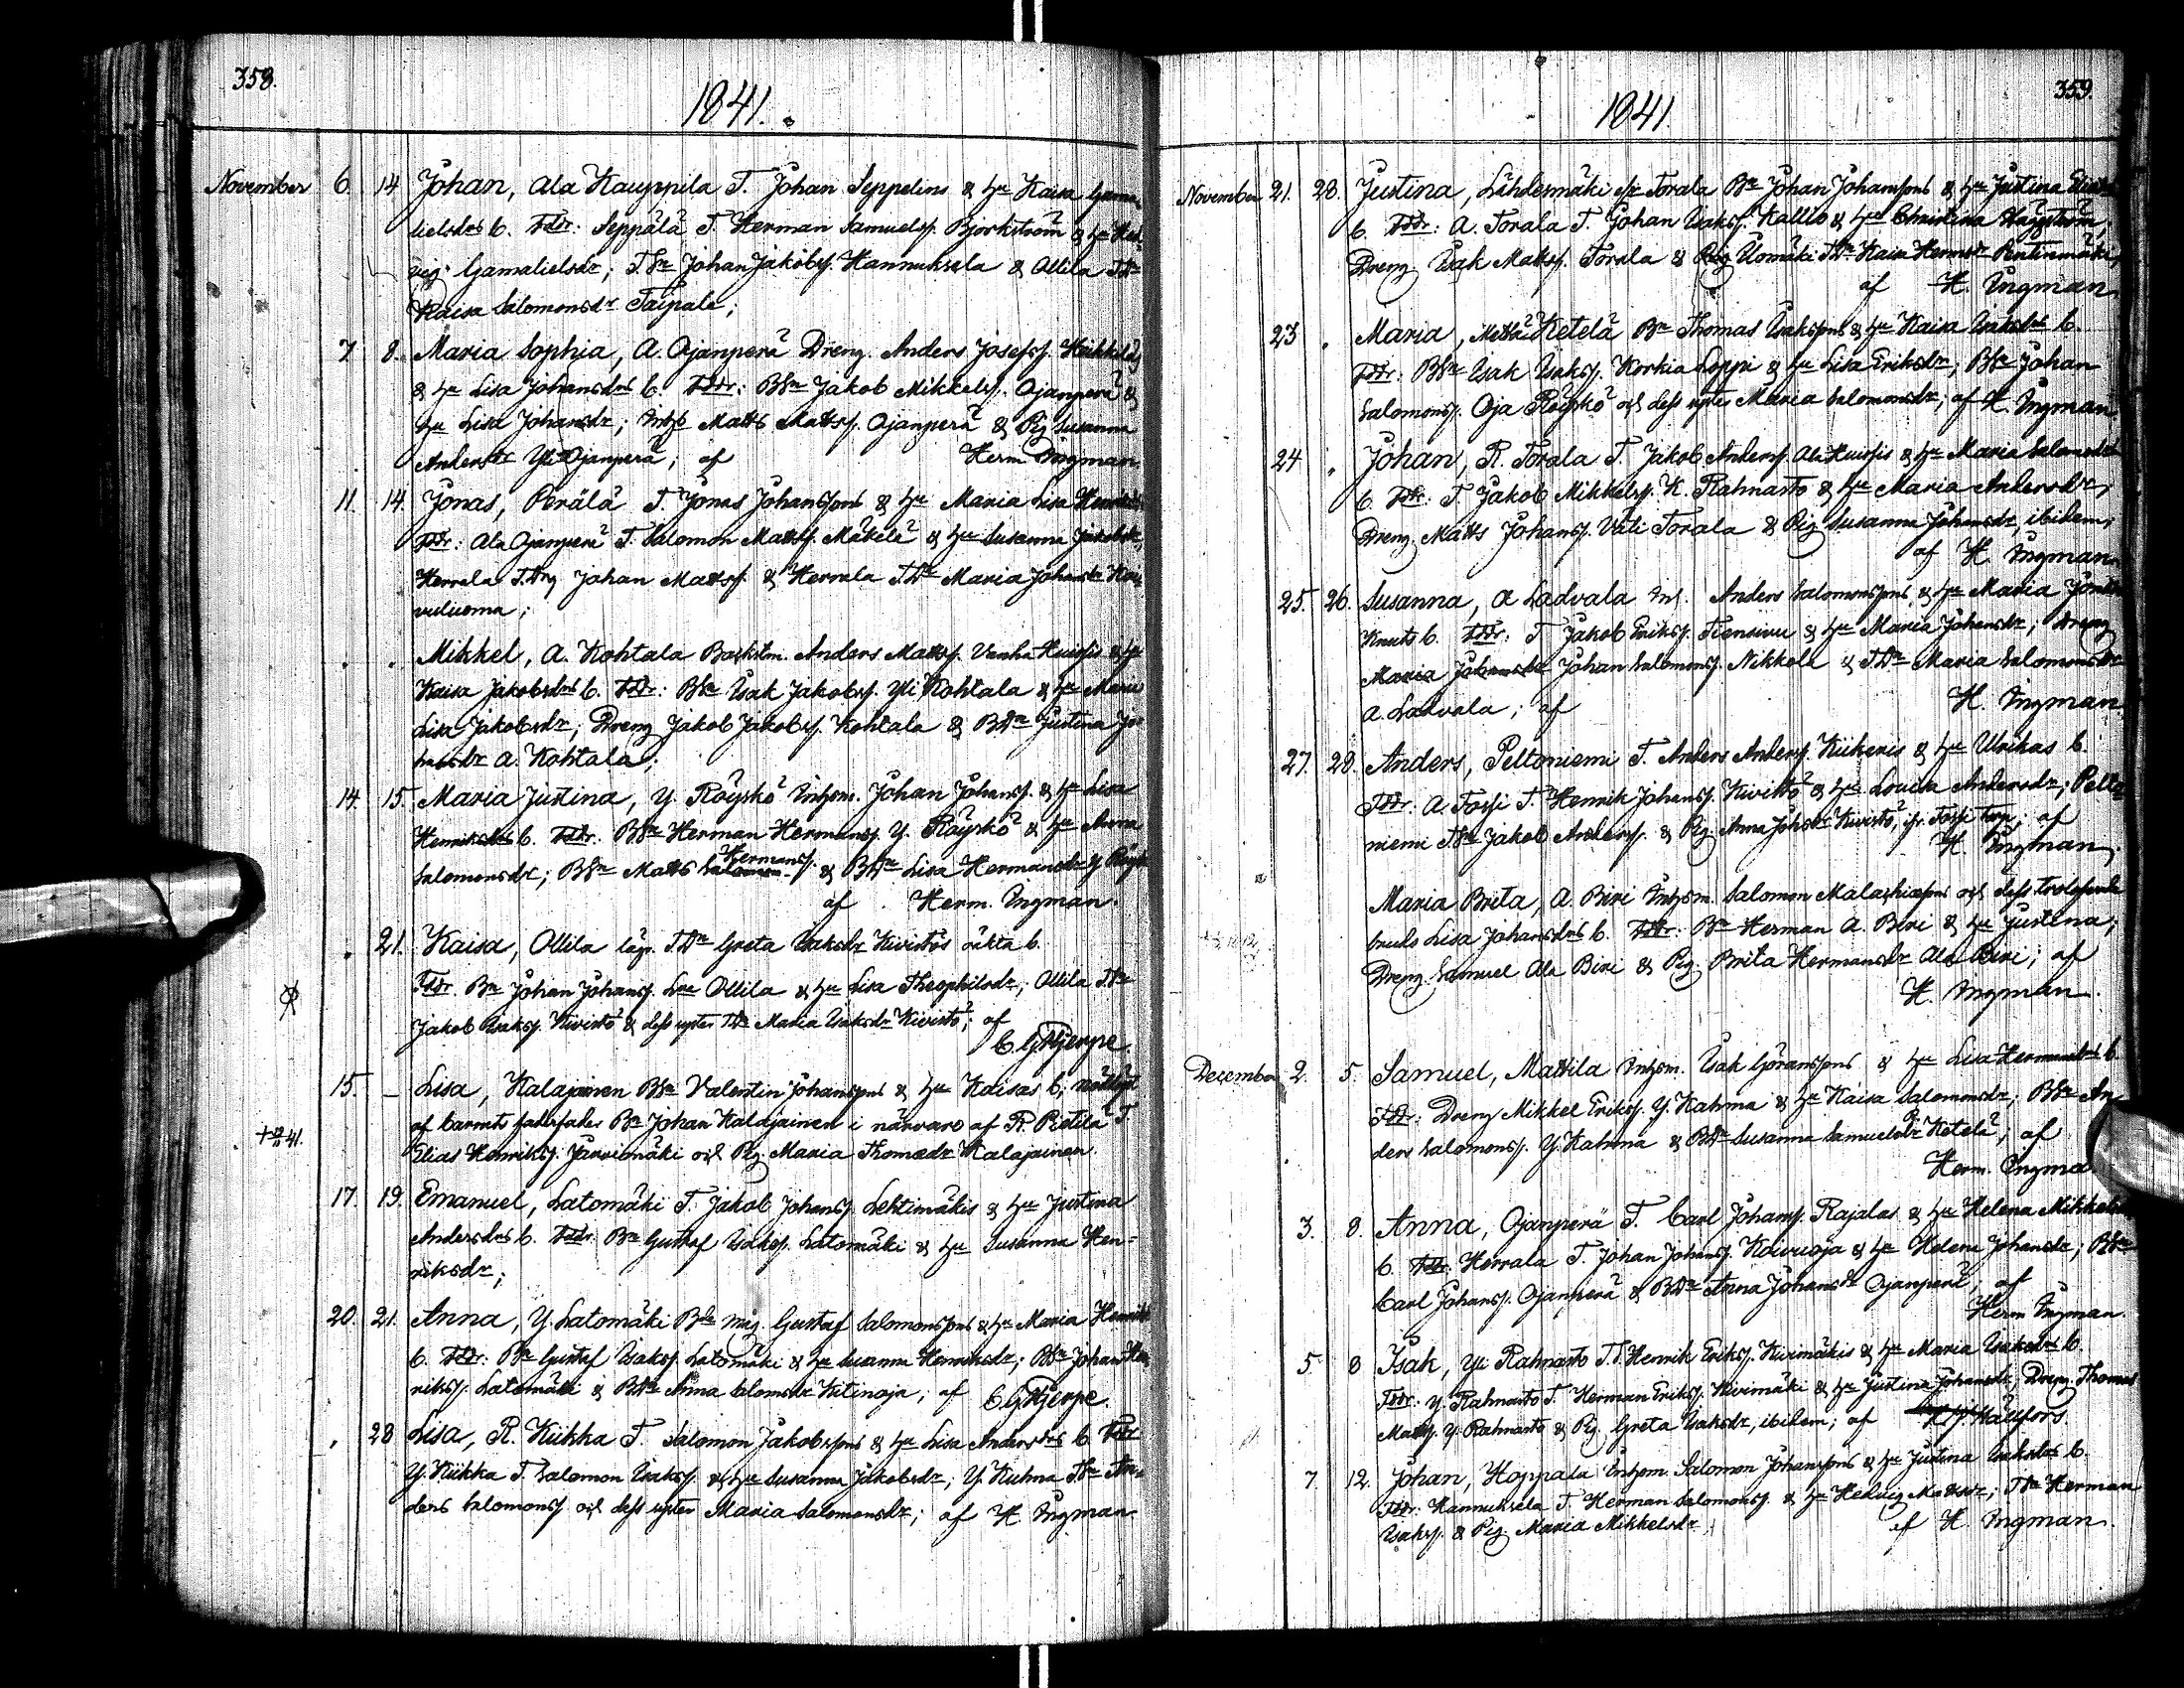 358.
1841.
November 6. 14 Johan, Ala Kauppila T. Johan Seppelins & Hu Kaisa Gama-
lielsdrs b. Fddr: Seppälä T. Herman Samuelsf. Björkström & Hu Hed-
vig Gamalielsdr; T.Sn Johan Jakobsf. Hannuksela & Ollila T.Dr
Kaisa Salomonsdr Taipale;
7 8. Maria Sophia, A. Ojanperä Dreng. Anders Josefsf. Heikkilä
& Hu Lisa Johansdrs b. Fddr: BSn Jakob Mikkelsf. Ojanperä &
Hu Lisa Johansdr; Matts Mattsf. Ojanperä & Pig Susanna
Andersdr Yli Ojanperä; af Herm Ingman
11. 14. Jonas, Perälä T. Jonas Johanssons & Hu Maria Lisa
Fddr: Ala Ojanperä T. Salomon Mattsf. Mäkelä & Hu Susanna Jakobsdr,
Herrala T.Drg Johan Mattsf. & Herrala T.Dr Maria Johansdr
vuluoma;
. . Mikkel, A. Kohtala Backstm. Anders Mattsf. Vanha Huissis & Hu
Kaisa Jakobsdrs b. Fddr: BSn Isak Jakobsf. Yli Kohtala & Hu Maria
Lisa Jakobsdr; Dreng Jakob Jakobsf. Kohtala & BDr Justina Jo-
hansdr A. Kohtala;
14. 15. Maria Justina, Y. Röyskö Inhsm. Johan Johansf. & Hu Lisa
Henriksdrs b. Fddr. BSn Herman Hermansf. Y. Röyskö & Hu Anna
Salomonsdr; BSn Matts Hermansf. & BDr Lisa Hermansdr Y Röyskö
af Herm. Ingman.
. 21. Kaisa, Ollila läg. T.Dr Greta Isaksdr Kivistös oäkta b.
Fddr. Bn Johan Johansf. Ollila & Hu Lisa Theophilsdr; Ollila T.Sn
Jakob Isaksf. Kivistö & dess syster T.Dr Maria Isaksdr Kivistö; af
C. G. Hjerpe.
15. – Lisa, Kalajainen BSn Valentin Johanssons & Hu Kaisas b; nöddöpt
+ 41. af barnets faderfader Bn Johan Kalajainen i närvaro af R. Pietilä T
Elias Henriksf. Järvimäki och Pig. Maria Thomasdr Kalajainen.
17. 19. Emanuel, Latomäki T. Jakob Johansf. Lehtimäkis & Hu Justina
Andersdrs b. Fddr. Bn Gustaf Isaksf. Latomäki & Hu Susanna Hen-
riksdr;
20. 21. Anna, Y. Latomäki Bde måg. Gustaf Salomonssons & Hu Maria
b. Fddr: Bn Gustaf Isaksf. Latomäki & Hu Susanna Henriksdr; BSn Johan Hen-
riksf. Latomäki & BDr Anna Salomsdr Kitinoja; af C. G. Hjerpe.
. 28 Lisa, R. Kiikka T. Salomon Jakobssons & Hu Lisa Andersdrs b. Fddr
Y. Kiikka T. Salomon Isaksf. & Hu Susanna Jakobsdr; Y. Kuhna TSn An-
ders Salomonsf. och dess syster Maria Salomonsdr; af H. Ingman.
359.
1841.
November 21. 28. Justina, Lähdesmäki Torala Bn Johan Johanssons & Hu Justina
b. Fddr: A. Torala T. Johan Isaksf. Kallio & Hu Christina Häggström;
Dreng Isak Mattsf. Torala & Pig T.Dr Kaisa Hermsdr Pentinmäki;
af H. Ingman
23 . Maria, Ketelä Bn Thomas Isakssons & Hu Kaisa Isaksdrs b.
Fddr: BSn Isak Isaksf. Korkia Loppi & Hu Lisa Eriksdr; BSn Johan
Salomonsf. Oja Röyskö och dess syster Maria Salomonsdr; af H. Ingman
24 . Johan, R. Torala T. Jakob Andersf. Ala Huissis & Hu Maria Salomsdrs
b. Fddr: T. Jakob Mikkelsf. K. Rahnasto & Hu Maria Andersdr;
Dreng Matts Johansf. Väli Torala & Pig Susanna Johansdr, ibidem;
af H. Ingman.
25. 26. Susanna, A Ladvala Anders Salomonssons & Hu Maria
Knuts b. Fddr: T Jakob Eriksf. Tiensivu & Hu Maria Johansdr; Dreng
Johan Salomonsf. Nikkola & T.Dr Maria Salomonsdr
A. Ladvala; af H. Ingman.
27. 28. Anders, Peltoniemi T. Anders Andersf. Kiikeris & Hu Ulrikas b.
Fddr: A. Tossi T. Henrik Johansf. Kivistö & Hu Lovisa Andersdr; Pelto-
niemi TSn Jakob Andersf. & Pig. Anna Johsdr Kivistö, Tossi Torp; af
H. Ingman.
Maria Brita, A. Biri Inhsm. Salomon Malachiæsons och dess trolofvade
bruds Lisa Johansdrs b. Fddr: Bn Herman A. Biri & Hu Justina;
Dreng Samuel Ala Biri & Pig. Brita Hermansdr Ala Biri; af
H. Ingman.
December 2. 5. Samuel, Mattila Inhsm. Isak Göranssons & Hu Lisa Hermansdrs b
Fddr: Dreng Mikkel Eriksf. Y. Kahma & Hu Kaisa Salomonsdr; BSn An-
ders Salomonsf. Y. Kahma & BDr Susanna Samuelsdr Ketelä; af
Herm. Ingman
3. 8. Anna, Ojanperä T. Carl Johansf. Rajalas & Hu Helena Mikkelsdrs
b. Fddr. Herrala T. Johan Johansf. Koivuoja & Hu Helena Johansdr; BSn
Carl Johansf. Ojanperä & BDr Anna Johansdr Ojanperä; af
Herm Ingman.
5 8 Isak, Yli Rahnasto T.T. Henrik Eriksf. Kivimäkis & Hu Maria Isaksdrs b.
Fddr: Y. Rahnasto T. Herman Eriksf. Kivimäki & Hu Justina Johansdr; Dreng Thomas
Mattsf. Y. Rahnasto & Pig. Greta Isaksdr, ibidem; af Hällfors.
7. 12. Johan, Hoppala Inhsm. Salomon Johanssons & Hu Justina Isaksdrs b.
Fddr. Hannuksela T. Herman Salomonsf. & Hu Hedvig Mattsdr; TSn Herman
Isaksf. & Pig. Maria Mikkelsdr; af H. Ingman.